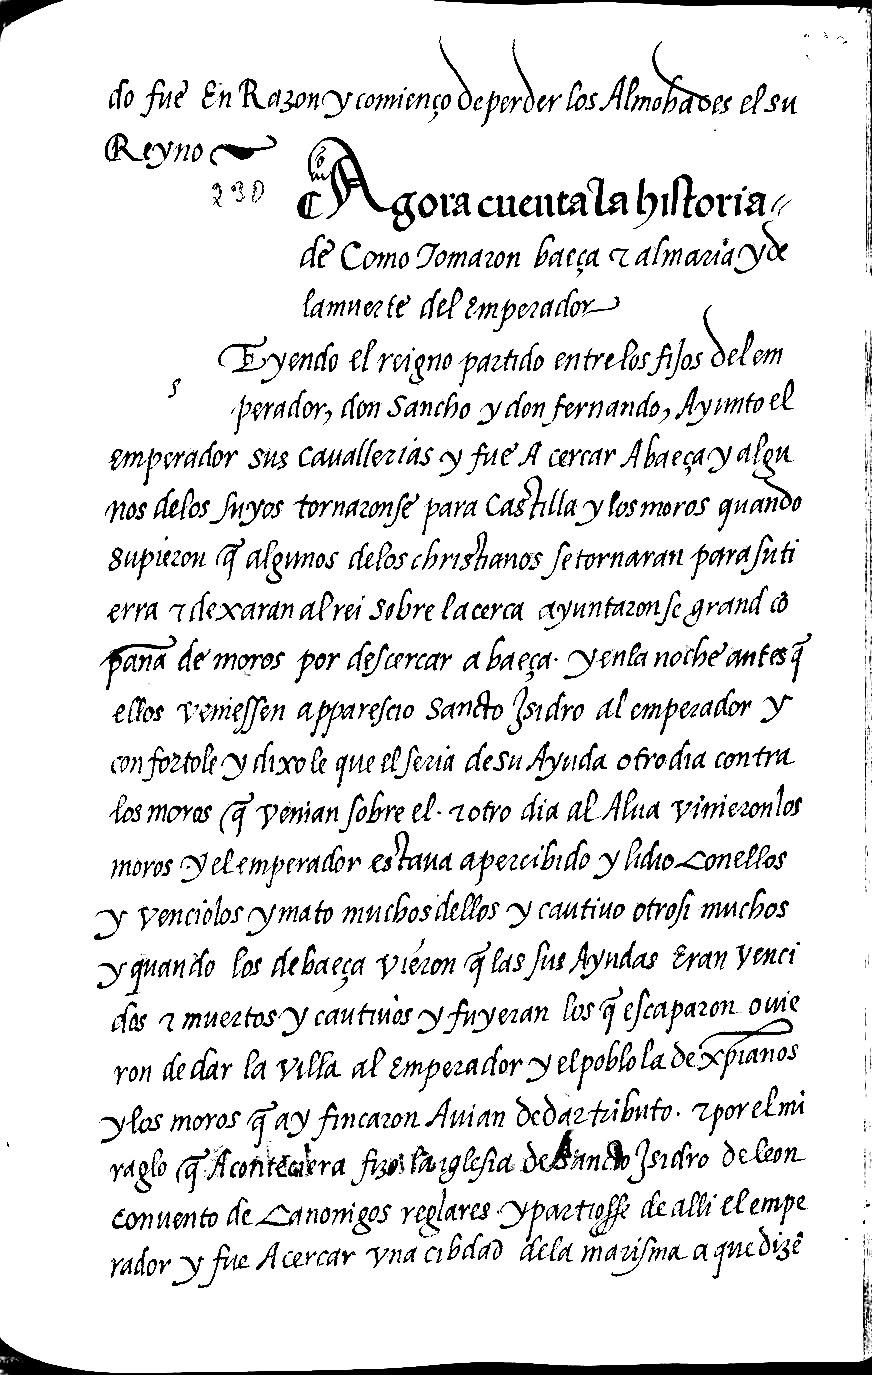 do fue En Razon y comienço de perder los Almohades el su
Reyno
230
Agora cuenta la historia
de Como Tomaron baeça ⁊ almaria y de
la muerte del Emperador
Seyendo el reigno partido entre los fijos del em
s
perador, don Sancho y don fernando, Ayunto el
emperador sus Cavallerias y fue A cercar A baeça y algu
nos de los suyos tornaronse para Castilla y los moros quando
supieron q̃ algunos de los christianos se tornaran para su ti
erra ⁊ dexaran al rei sobre la cerca ayuntaronse grand cõ
pana de moros por descercar a baeça. y en la noche antes q̃
ellos veniessen apparescio Sancto Isidro al emperador y
confortole y dixole que el seria de su Ayuda otro dia contra
los moros q̃ venian sobre el. ⁊ otro dia al Alua vinieron los
moros y el emperador estaua apercibido y lidio Con ellos
y venciolos y mato muchos dellos y cautiuo otrosi muchos
y quando los de baeça vieron q̃ las sus Ayudas Eran venci
dos ⁊ muertos y cautiuos y fuyeran los q̃ escaparon ouie
ron de dar la villa al Emperador y el poblola de xp̃ianos
y los moros q̃ ay fincaron Auian de dar tributo. ⁊ por el mi
raglo q̃ Aconteciera fizo la iglesia de Sancto Isidro de leon
convento de Canonigos reglares y partiosse de alli el empe
rador y fue A cercar vna cibdad de la marisma a que dizẽ